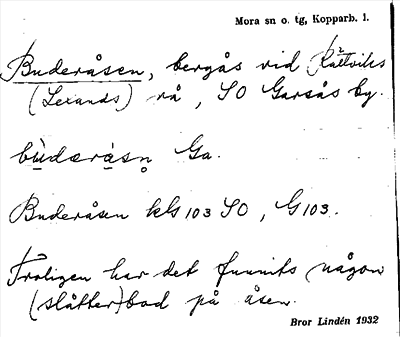 Mora sn o. tg, Kopparb. l.
Buderåsen, bergås vid Rättviks
(Leksands) rå, SO Garsås by.
bùdæråsn̥ Ga.
Buderåsen kls 103 SO, G 103.
Troligen har det funnits någon
(slåtter)bod på åsen.
Bror Lindén 1932